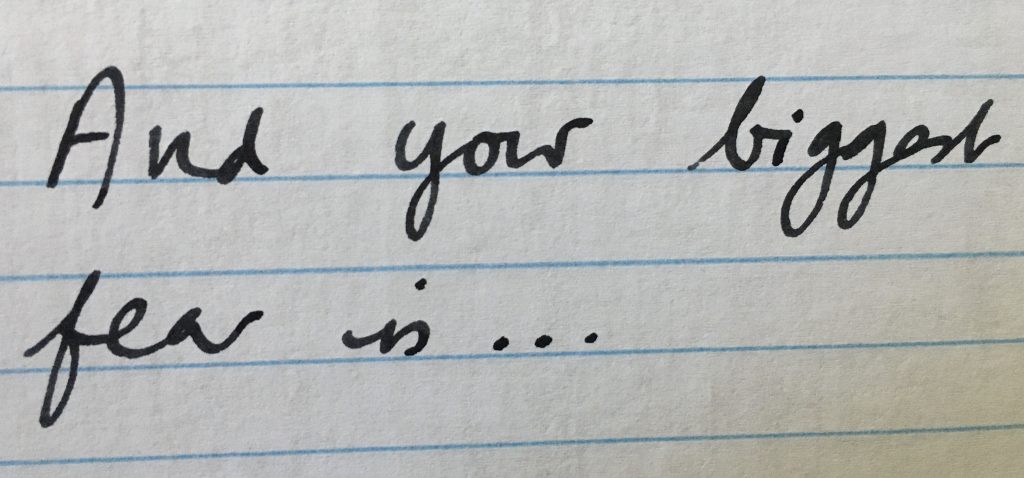 And your biggest
fear is...